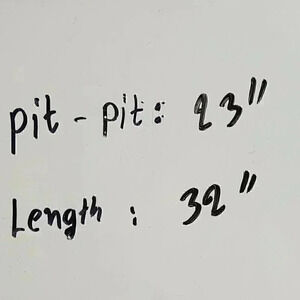 pit - pit: 23"
Length : 32"